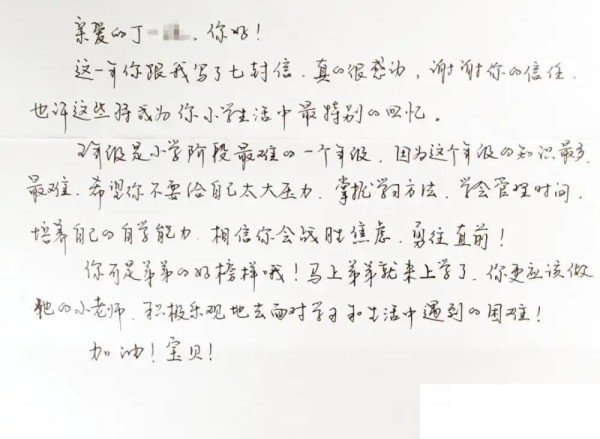 亲爱的丁一，你好！
这一年你跟我写了七封信，真的很感动，谢谢你的信任，
也许这些将成为你小学生活中最特别的回忆。
五年级是小学阶段最难的一个年级，因为这个年级的知识最多、
最难，希望你不要给自己太大压力，掌握学习方法，学会管理时间，
培养自己的自学能力，相信你会战胜焦虑，勇往直前！
你可是弟弟的好榜样哦！马上弟弟就来上学了，你更应该做
他的小老师，积极乐观地去面对学习和生活中遇到的困难！
加油！宝贝！